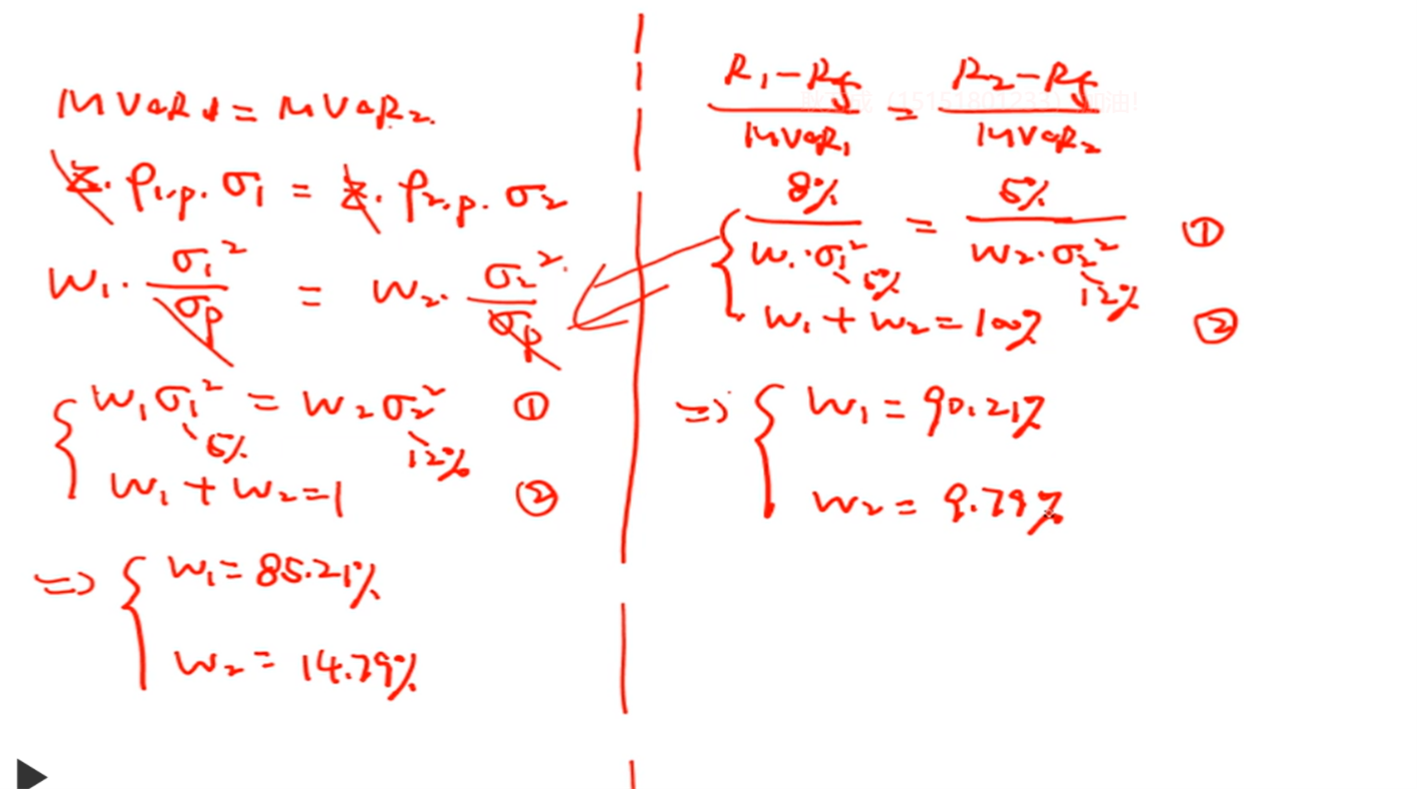 MVaR1 = MVaR2.
z·ρ1,p·σ1 = z·ρ2,p·σ2
w1·σ1²/σp = w2·σ2²/σp
w1σ1² = w2σ2² ①
5% 12%
w1 + w2 = 1 ②
=> w1 = 85.21%
w2 = 14.79%
R1-Rf/MVaR1 = R2-Rf/MVaR2
8%/w1·σ1² = 5%/w2·σ2² ①
5% 12%
w1 + w2 = 100% ②
=> w1 = 90.21%
w2 = 9.79%